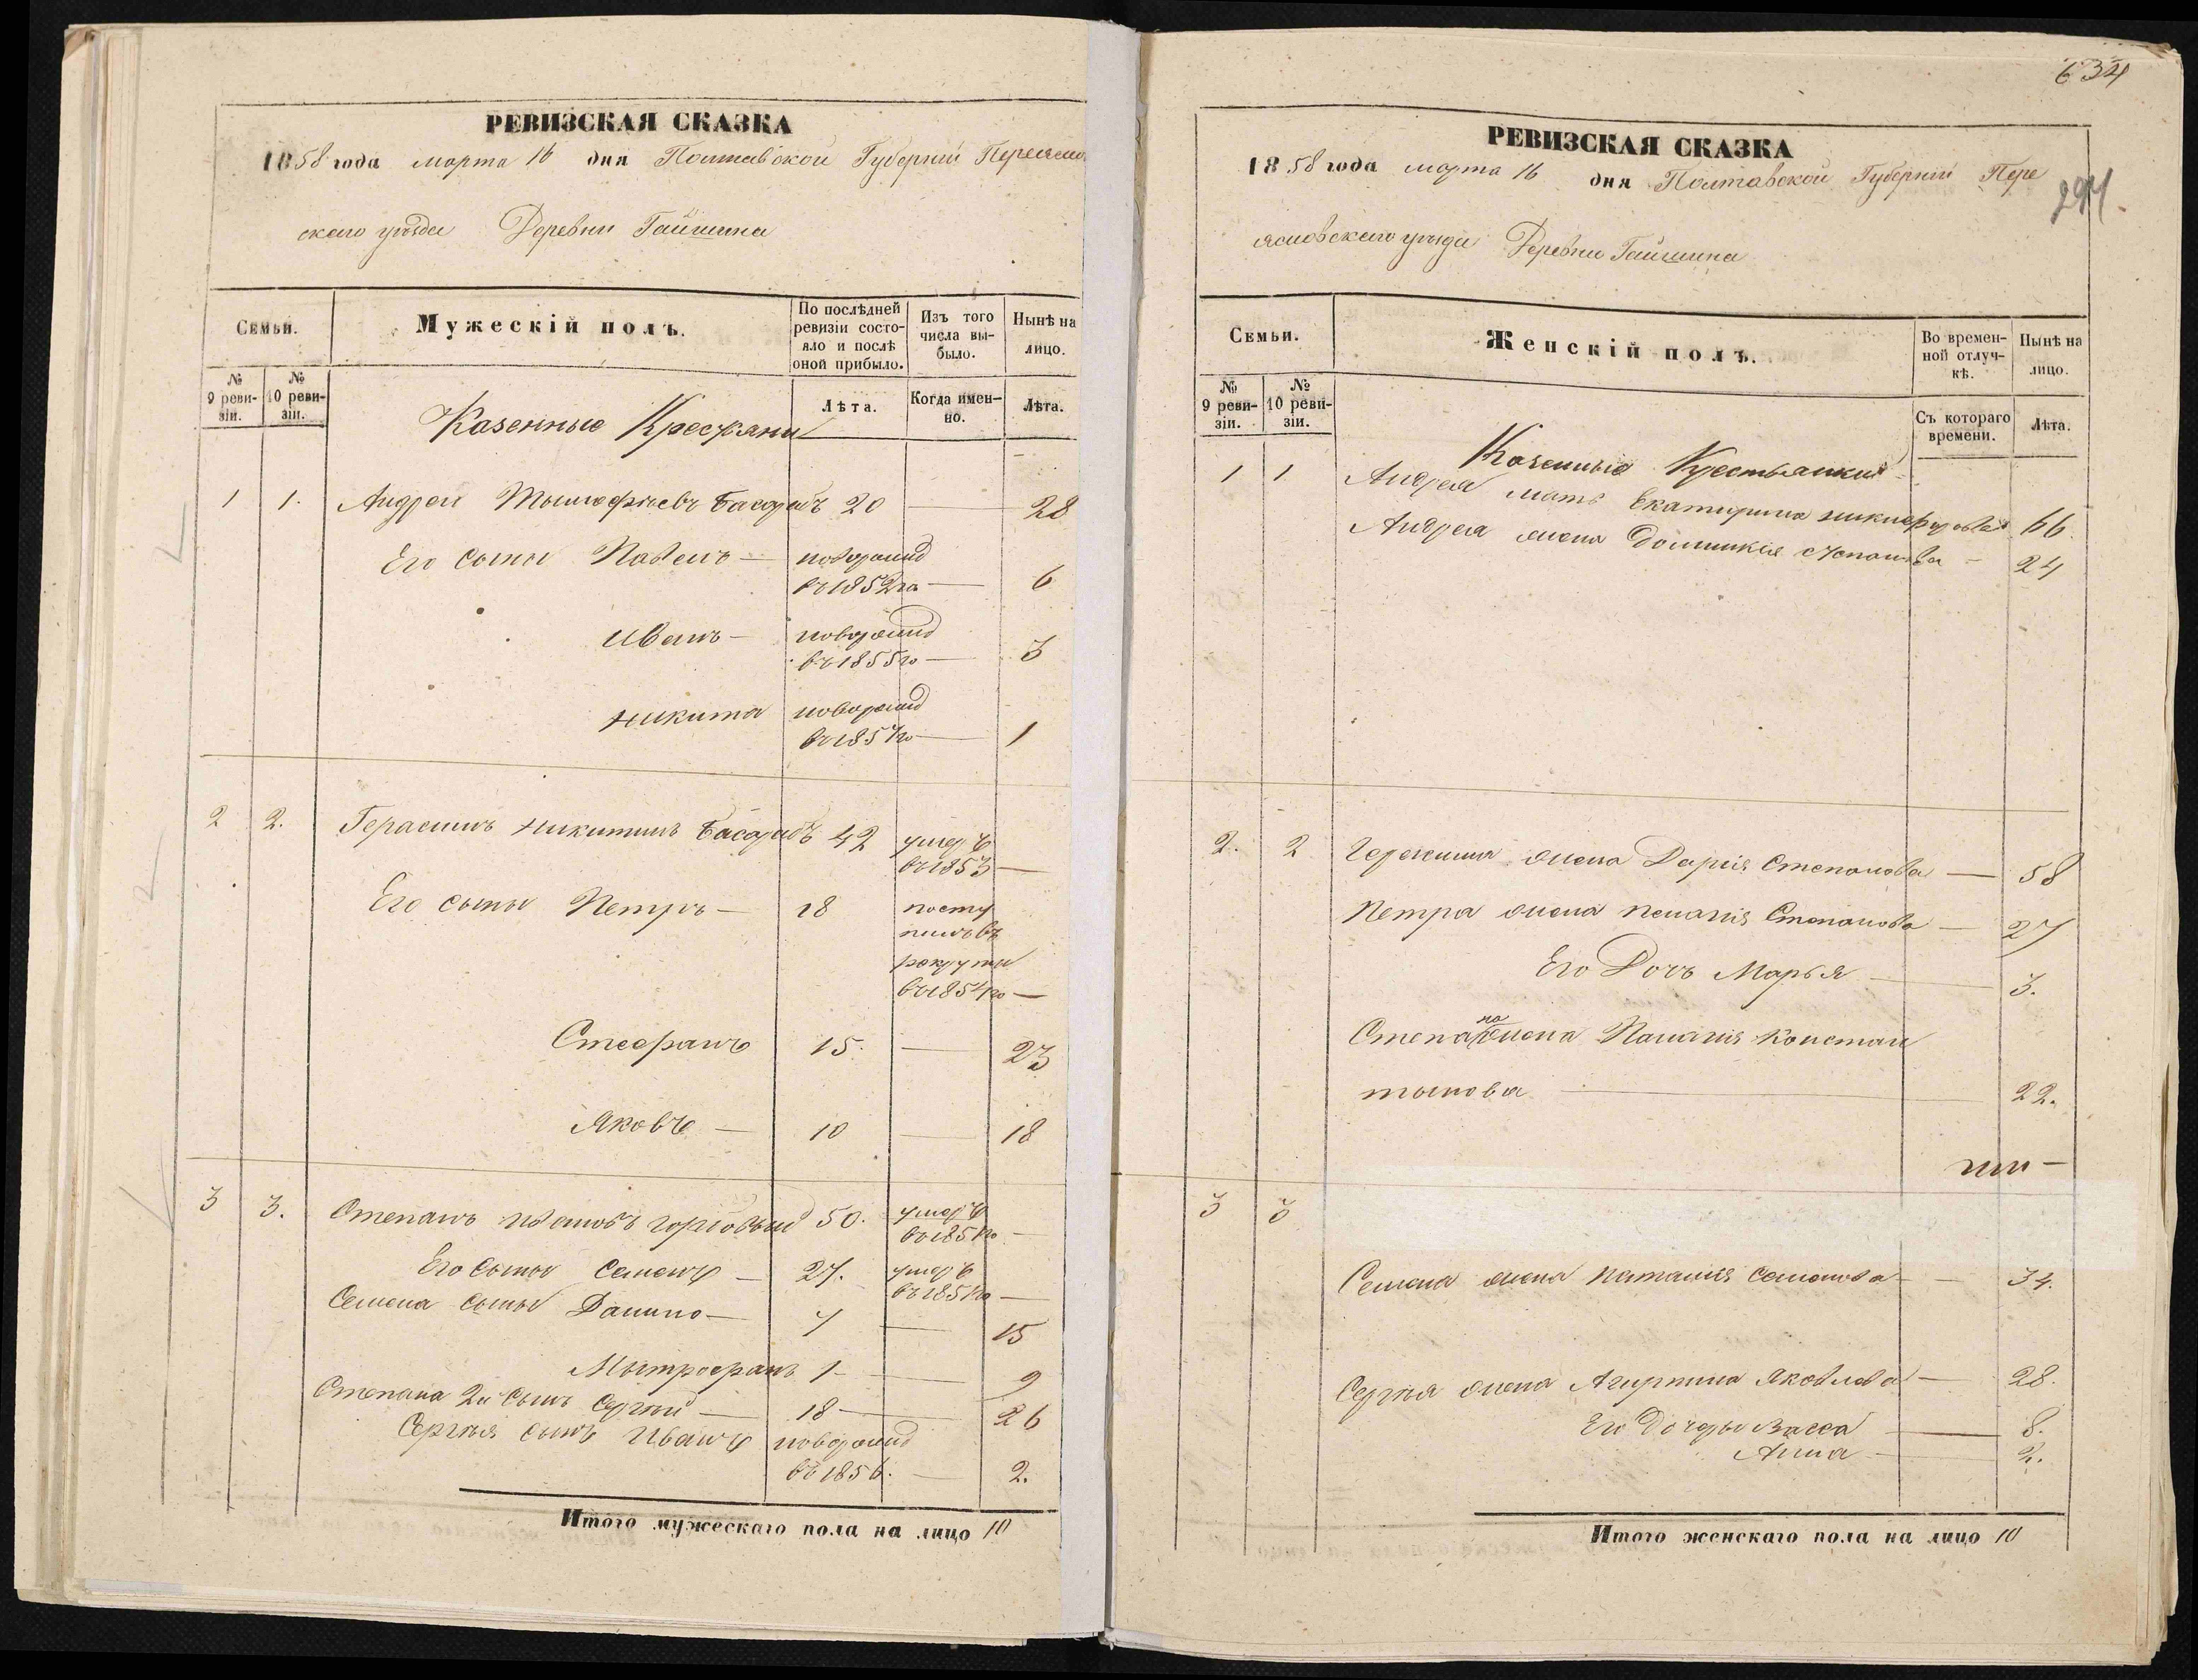 РЕВИЗСКАЯ СКАЗКА
1858 года марта 16 дня Полтавской Губерніи Переяслов
скаго уѣзда Деревни Гайшина
Семьи.
Мужескій полъ.
По послѣдней ревизіи состояло и послѣ оной прибыло.
Изъ того числа выбыло.
Нынѣ на лицо.
№ 9 ревизіи.
№ 10 ревизіи.
Лѣта.
Когда именно.
Лѣта.
Казенные
1 1. Андрей Басарабъ 20 — 28
Его сыны Павелъ —
въ 1852 го — 6
Иванъ —
въ 1855 го — 3
Никита
въ 1857 го — 1
2 2. Герасимъ Никитинъ Басарабъ 42 умеръ
въ 1853 —
Его сыны Петръ — 18 посту
пилъ въ
рекруты
въ 1854 го —
Стефанъ 15. — 23
Яковъ — 10 — 18
3 3. Степанъ 50. умеръ
Его сыны Семенъ — 27. умеръ
Семена сыны Данило — 7 — 15
Мытрофанъ 1 — 9
Степана 2й сынъ Сергѣй — 18 — 26
Сергѣя сынъ Иванъ
въ 1856. — 2.
Итого мужескаго пола на лицо 10
634
294.
РЕВИЗСКАЯ СКАЗКА
1858 года марта 16 дня Полтавской Губерніи Пере
ясловскаго уѣзда Деревни Гайшина
Семьи.
Женскій полъ.
Во временной отлучкѣ.
Нынѣ на лицо.
№ 9 ревизіи.
№ 10 ревизіи.
Съ котораго времени.
Лѣта.
Казенные Крестьянки
1 1 Андрея мать Екатирина 66.
Андрея жена — 24
2. 2 жена Дарія Степанова — 58
Петра жена Степанова — 27
Его Дочь Марья — 3.
Степана жена Констан
тынова — 22.
3 3
Семена жена Наталия Семенова — 34.
Сергѣя жена Агирпина Яковлева — 28.
Его Дочери Васса — 8.
Анна — 2.
Итого женскаго пола на лицо 10